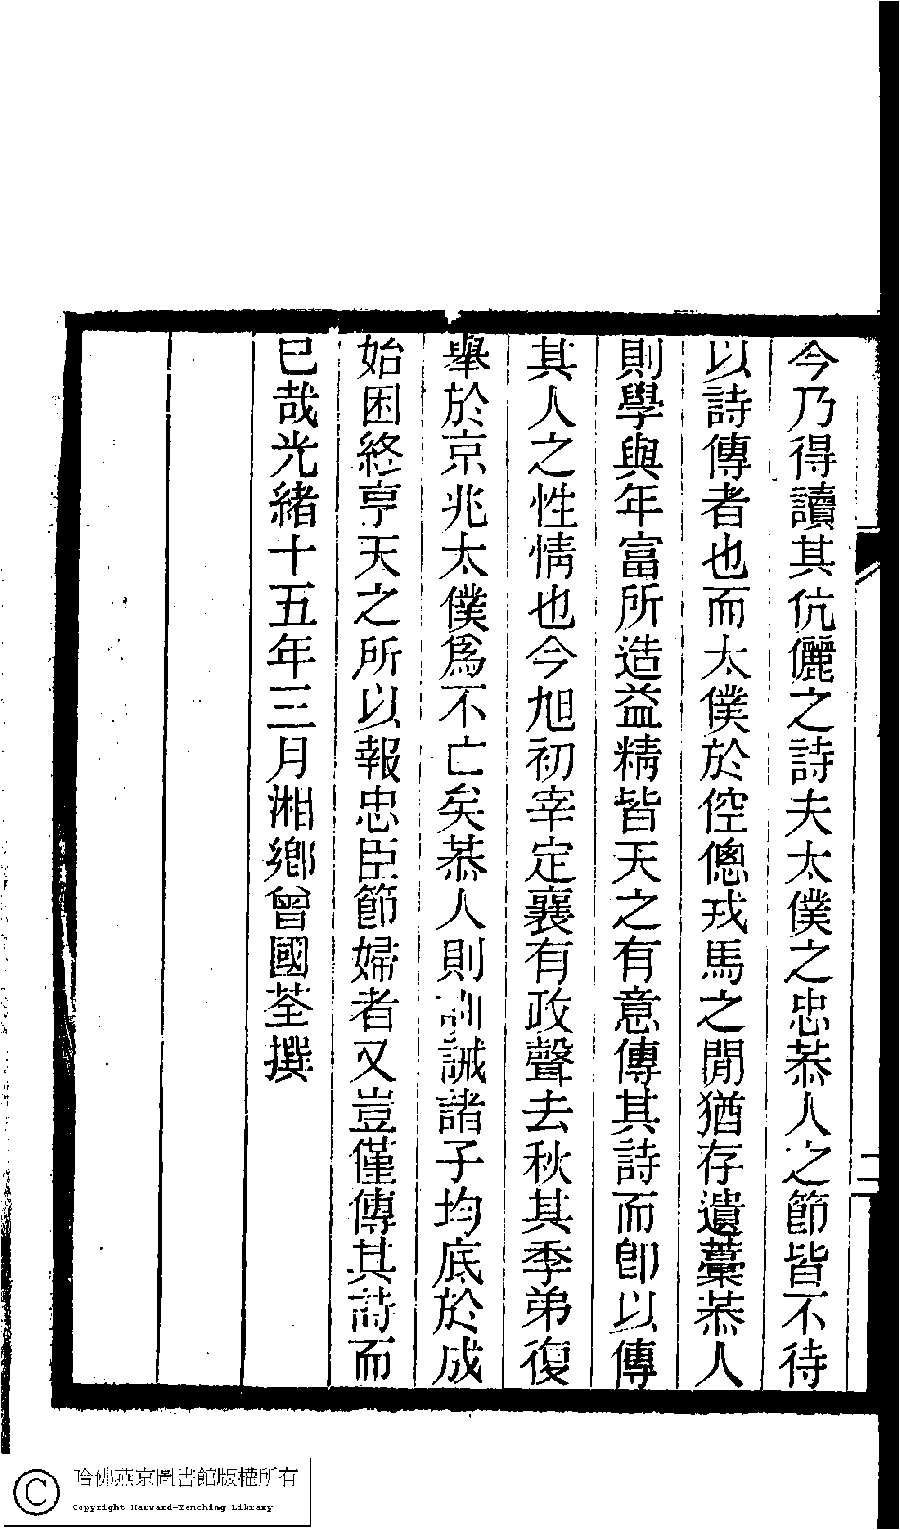 今乃得讀其伉儷之詩夫太僕之忠恭人之節皆不待
以詩傳者也而太僕於倥傯戎馬之閒猶存遺藁恭人
則學與年富所造益精皆天之有意傳其詩而卽以傳
其人之性情也今旭初宰定襄有政聲去秋其季弟復
舉於京兆太僕爲不亡矣恭人則訓誡諸子均底於成
始困終亨天之所以報忠臣節婦者又豈僅傳其詩而
已哉光緒十五年三月湘鄉曾國荃撰
二
哈佛燕京圖書館版權所有
Copyright Harvard-Yenching Library